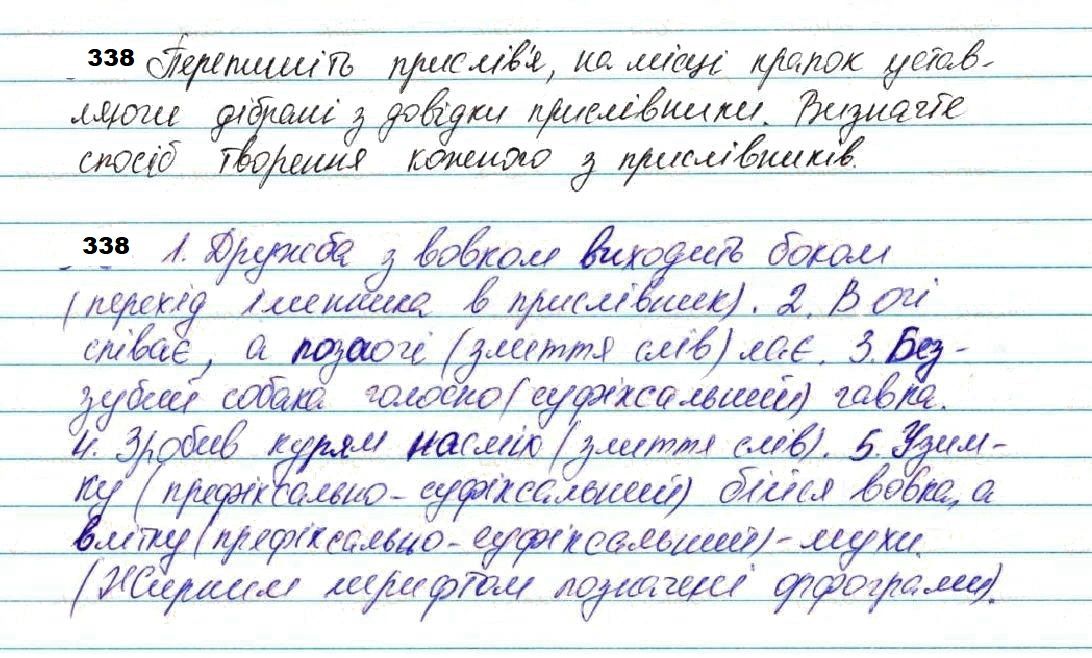 338 Перепишіть прислів'я, на місці крапок устав-
ляючи дібрані з довідки прислівники. Визначте
спосіб творення кожного з прислівників.
338 1. Дружба з вовком виходить боком
(перехід іменника в прислівник). 2. В очі
співає, а позаочі (злиття слів) лає. 3. Без-
зубий собака голосно (суфіксальний) гавка.
4. Зробив курям насміх (злиття слів). 5. Узим-
ку (префіксально-суфіксальний) бійся вовка, а
влітку (префіксально-суфіксальний) - мухи.
(Жирним шрифтом позначені орфограми).